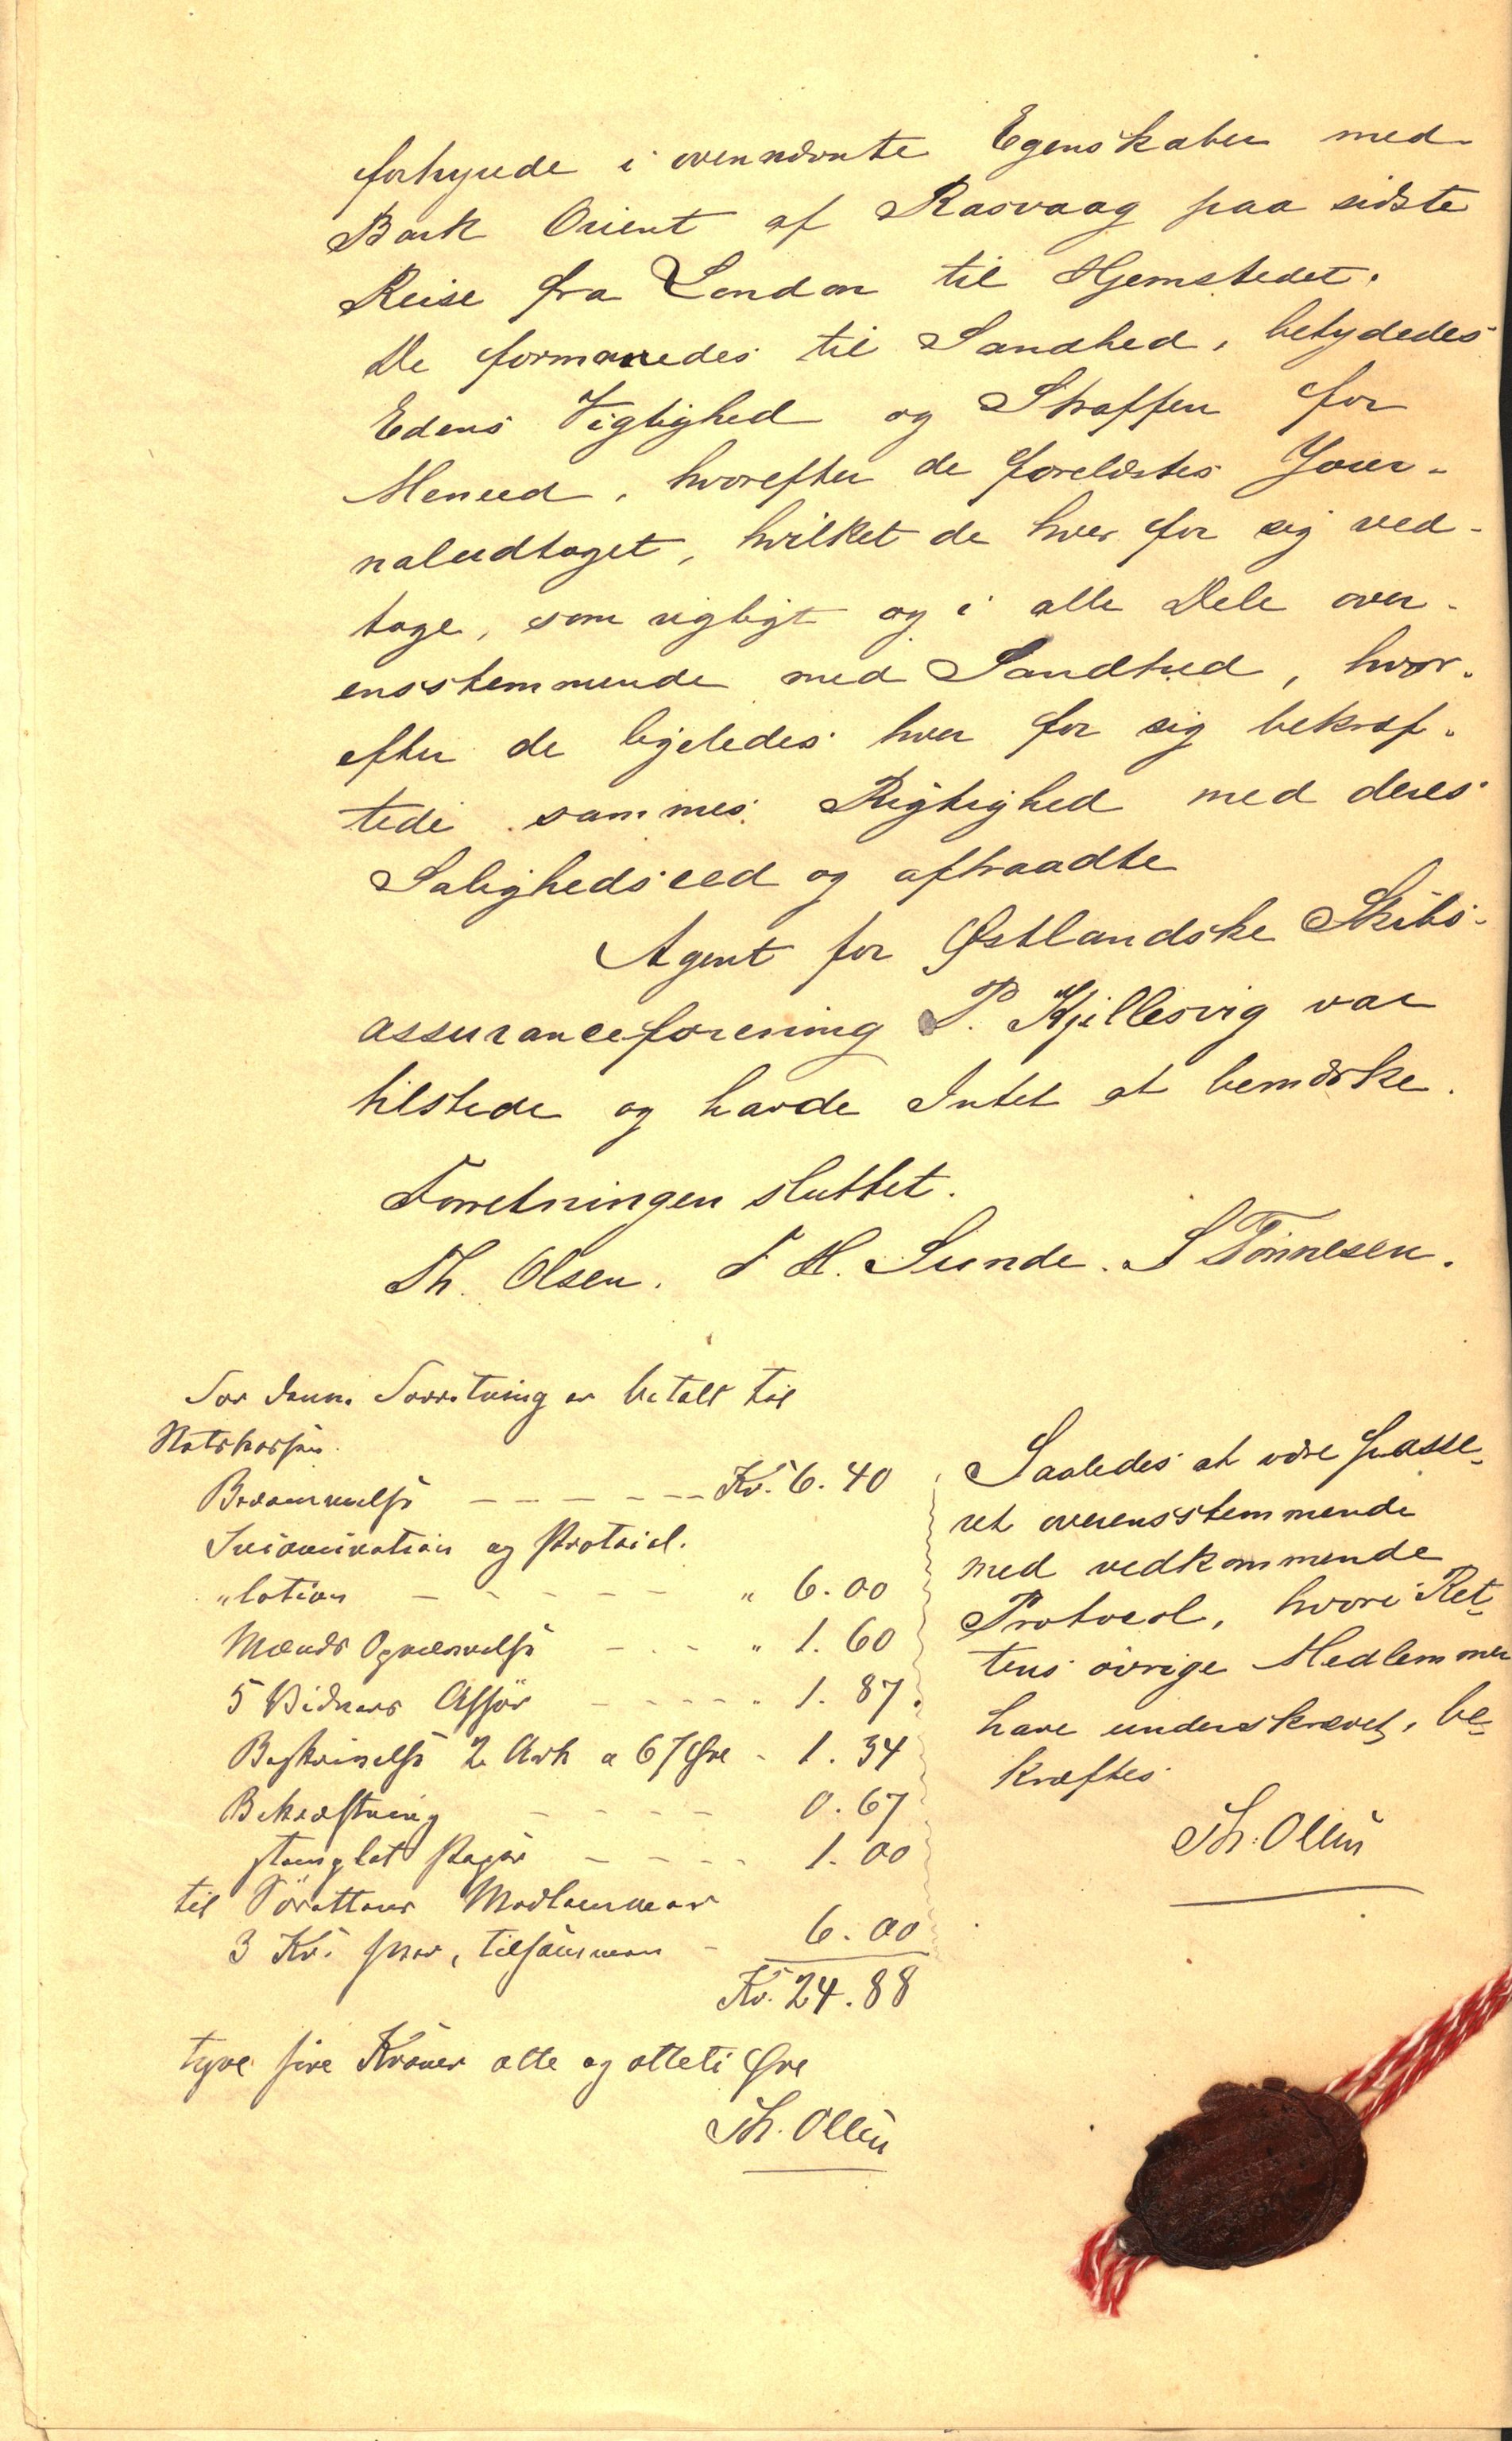 forhyrede i ovennævnte Egenskaber med
Bark Orient af Rasvaag paa sidste
Reise fra London til Hjemstedet.
De formanedes til Sandhed, betydedes
Edens Vigtighed og Straffen for
Meneed, hvorefter de forelæstes Jour-
naludtoget, hvilket de hver for sig ved-
toge, som rigtigt og i alle Dele over-
ensstemmende med Sandhed, hvor-
efter de ligeledes hver for sig bekræf-
tede sammes Rigtighed med deres
Salighedseed og aftraadte
Agent for Østlandske Skibs-
assuranceforening P. Kjellesvig var
tilstede og havde Intet at bemærke.
Forretningen sluttet.
Th. Olsen. T H. Sunde. S Tönnesen.
For denne Forretning er betalt til
Statskassen.
Berammelse - - - - - - Kr. 6.40
og Protocol.
"lation - - - - - " 6.00
Mænds Opnævnelse - - - " 1.60
5 Vidners - - - - " 1.87.
Beskrivelse 2 Ark a 67 Øre - 1.34
Bekræftning - - - - 0.67
stemplet Papir - - - - 1.00
til Sörettens Medlemmer
3 Kr. hver, tilsammen - 6.00
Kr. 24.88
tyve fire Kroner otte og otteti Øre
Th. Olsen
Saaledes at være passe-
ret overensstemmende
med vedkommende
Protocol, hvori Ret-
tens övrige Medlemmer
have underskrevet, be-
kræftes
Th. Olsen